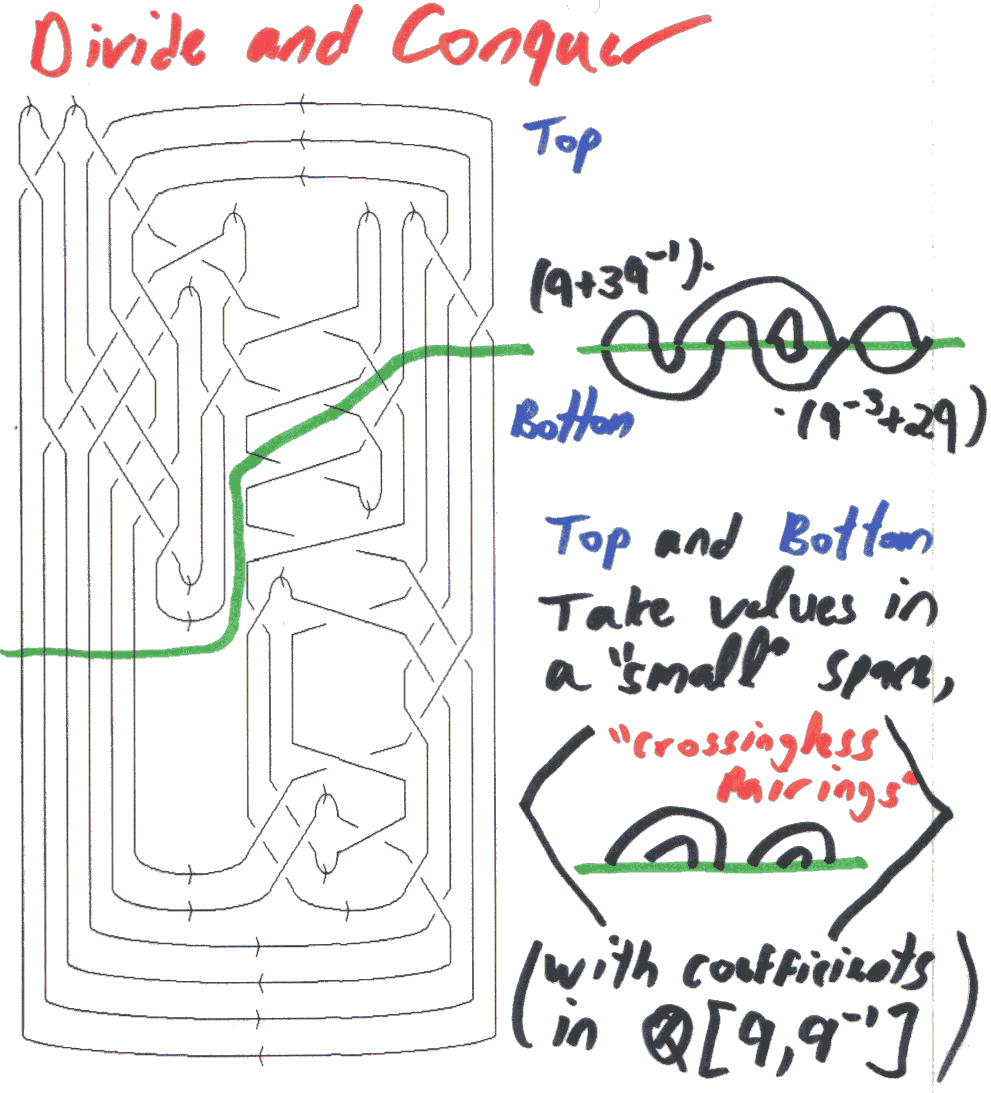 Divide and Conquer
Top
(q+3q⁻¹)·
Bottom
·(q⁻³+2q)
Top and Bottom
Take values in
a "small" space,
"crossingless
Pairings"
(with coefficients
in ℤ[q,q⁻¹])